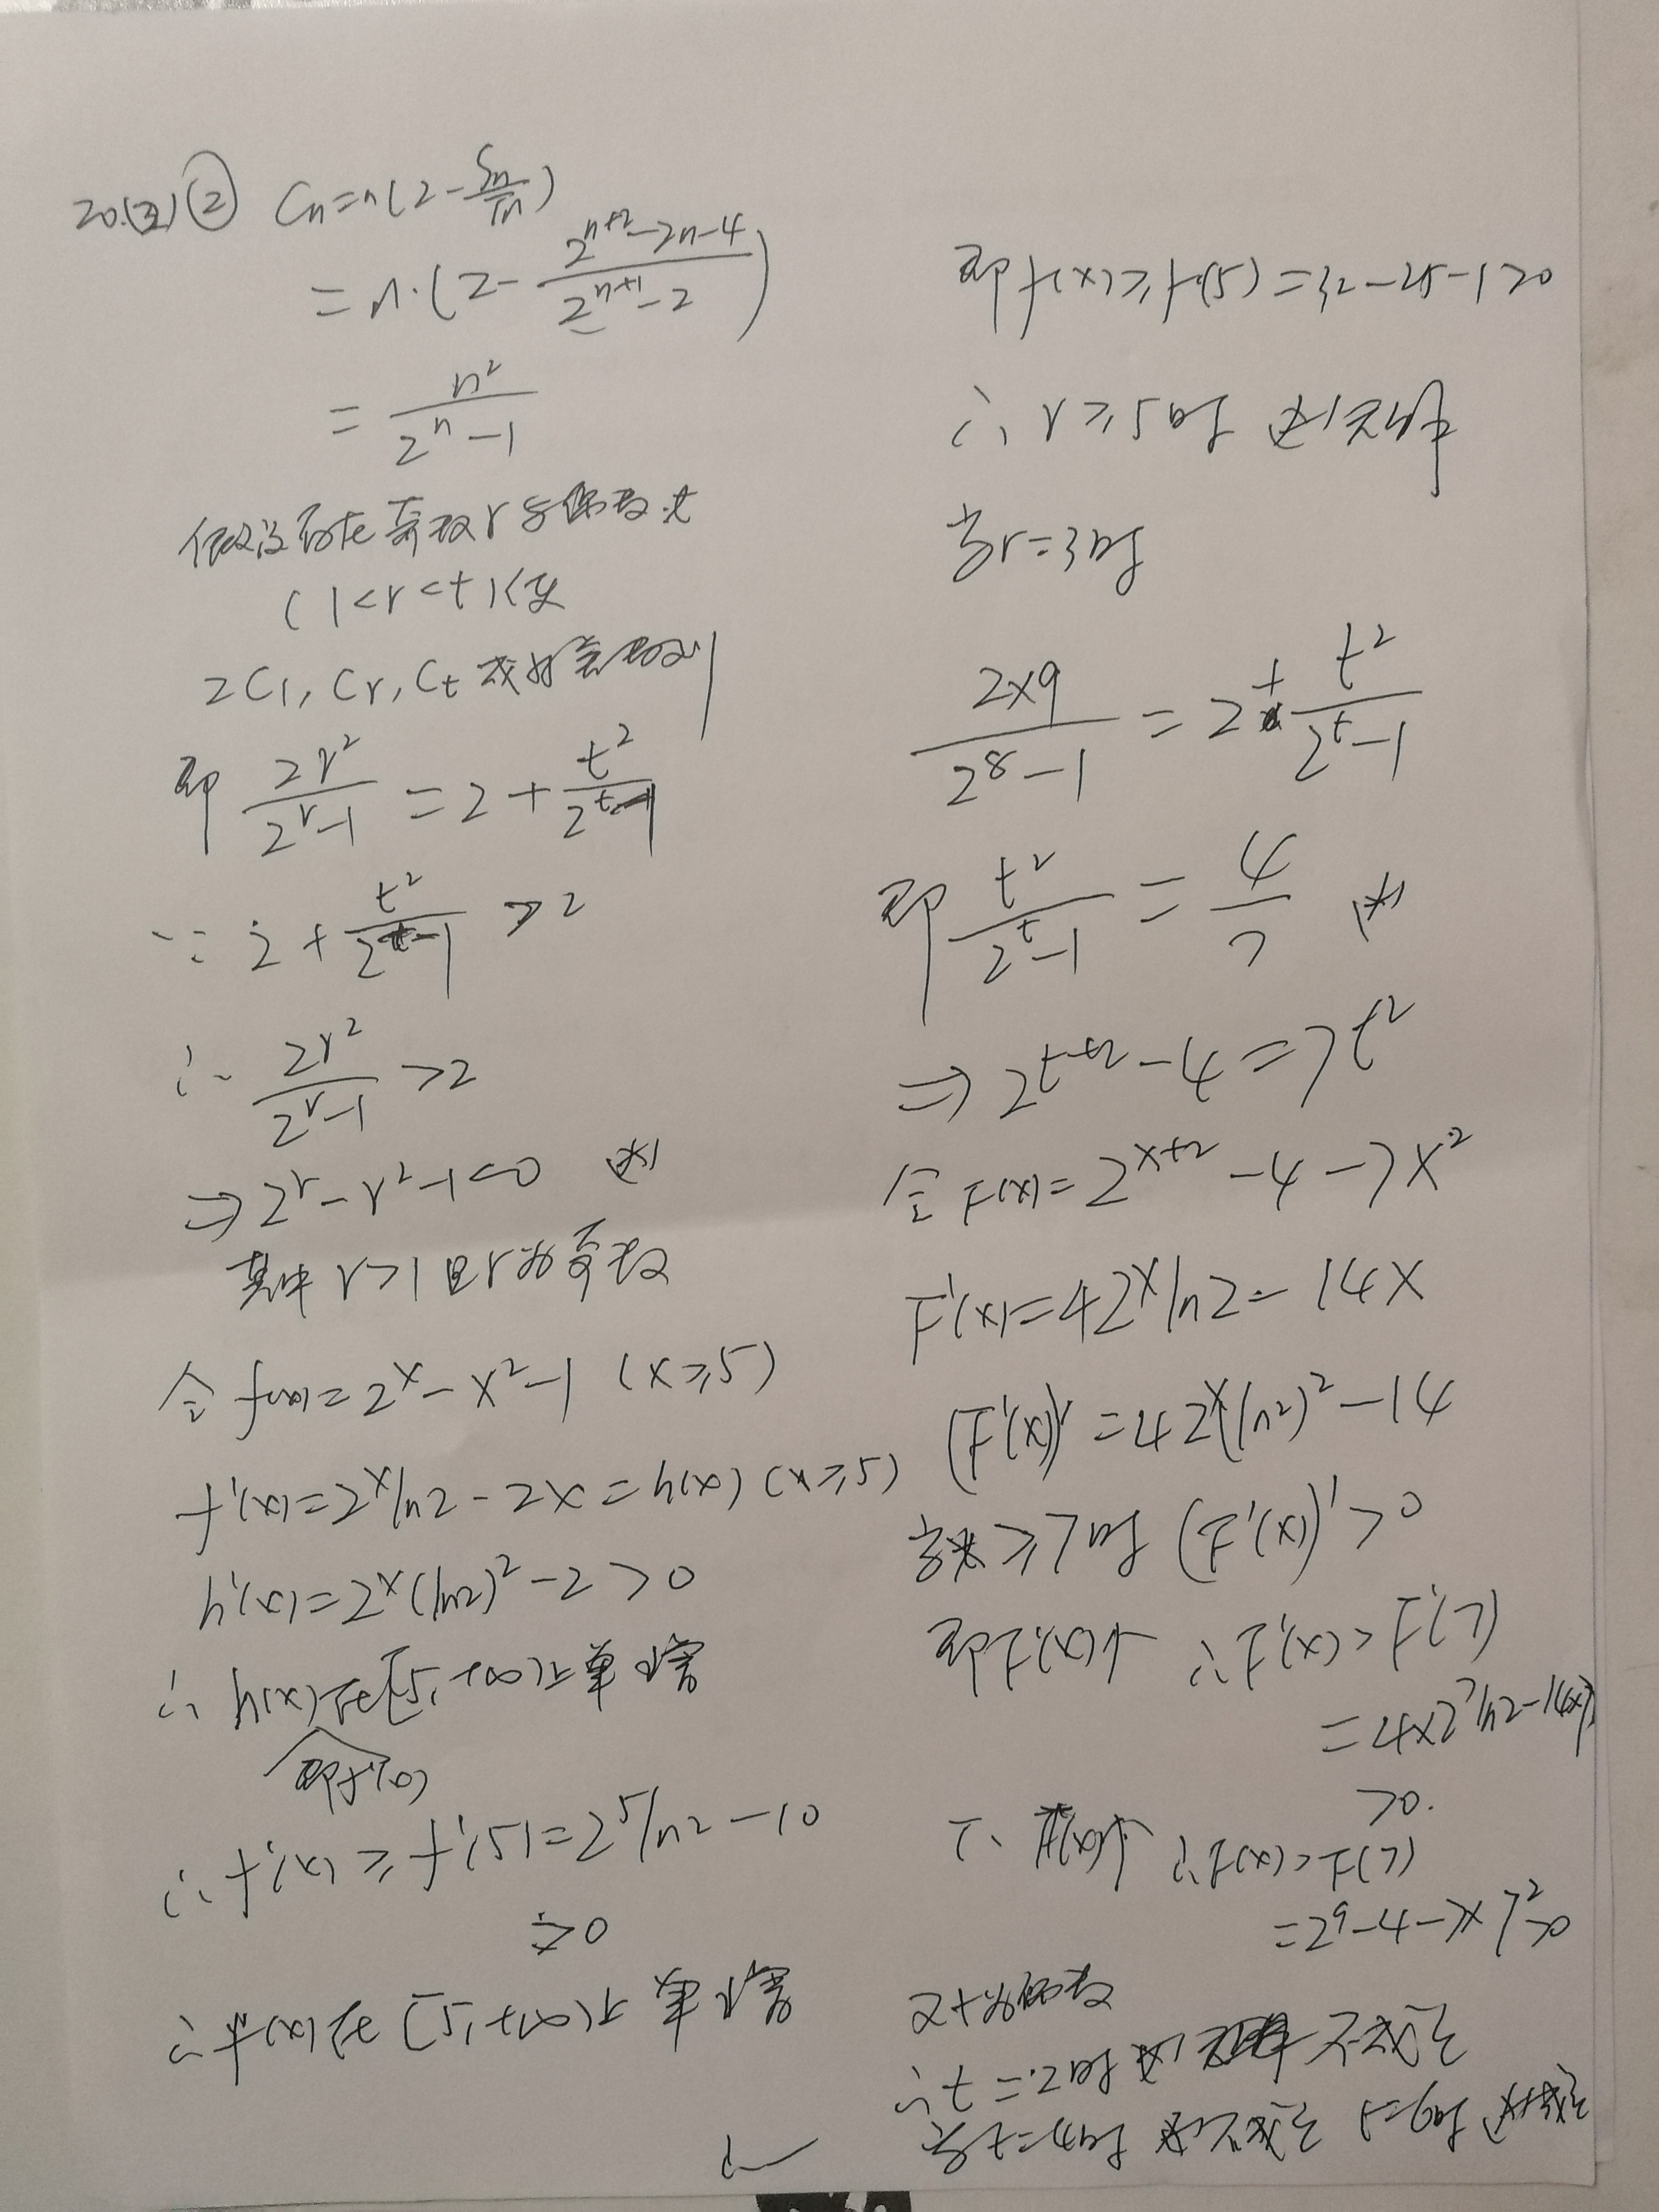 20.(3)② Cn=n(2-Sn/Tn)
=n·(2-(2^{n+2}-2n-4)/(2^{n+1}-2))
=n²/(2^n-1)
假设存在奇数r与偶数t
(1<r<t)使
2C₁,Cr,Ct成为等差数列
即 2r²/(2^r-1)=2+t²/(2^t-1)
∵ 2+t²/(2^t-1)>2
∴ 2r²/(2^r-1)>2
⇒2^r-r²-1<0 (*)
其中r>1且r为奇数
令f(x)=2^x-x²-1 (x≥5)
f'(x)=2^x ln2-2x=h(x) (x≥5)
h'(x)=2^x(ln2)²-2>0
∴ h(x)在[5,+∞)上单增
即f'(x)
∴ f'(x)≥f'(5)=2^5 ln2-10
>0
∴f(x)在[5,+∞)上单增
即f(x)≥f(5)=32-25-1>0
∴ r≥5时 (*)无解
当r=3时
2×9/(2^8-1)=2+t²/(2^t-1)
即 t²/(2^t-1)=4/7 (*)
⇒2^{t+2}-4=7t²
令F(x)=2^{x+2}-4-7x²
F'(x)=4 2^x ln2-14x
(F'(x))'=4 2^x(ln2)²-14
当x≥7时 (F'(x))'>0
即F'(x)↑ ∴F'(x)>F'(7)
=4×2^7 ln2-14×7
>0.
∴ F(x)↑ ∴F(x)>F(7)
=2^9-4-7×7²>0
又t为偶数
∴t=2时(*)不成立
当t=4时(*)不成立 t=6时(*)成立